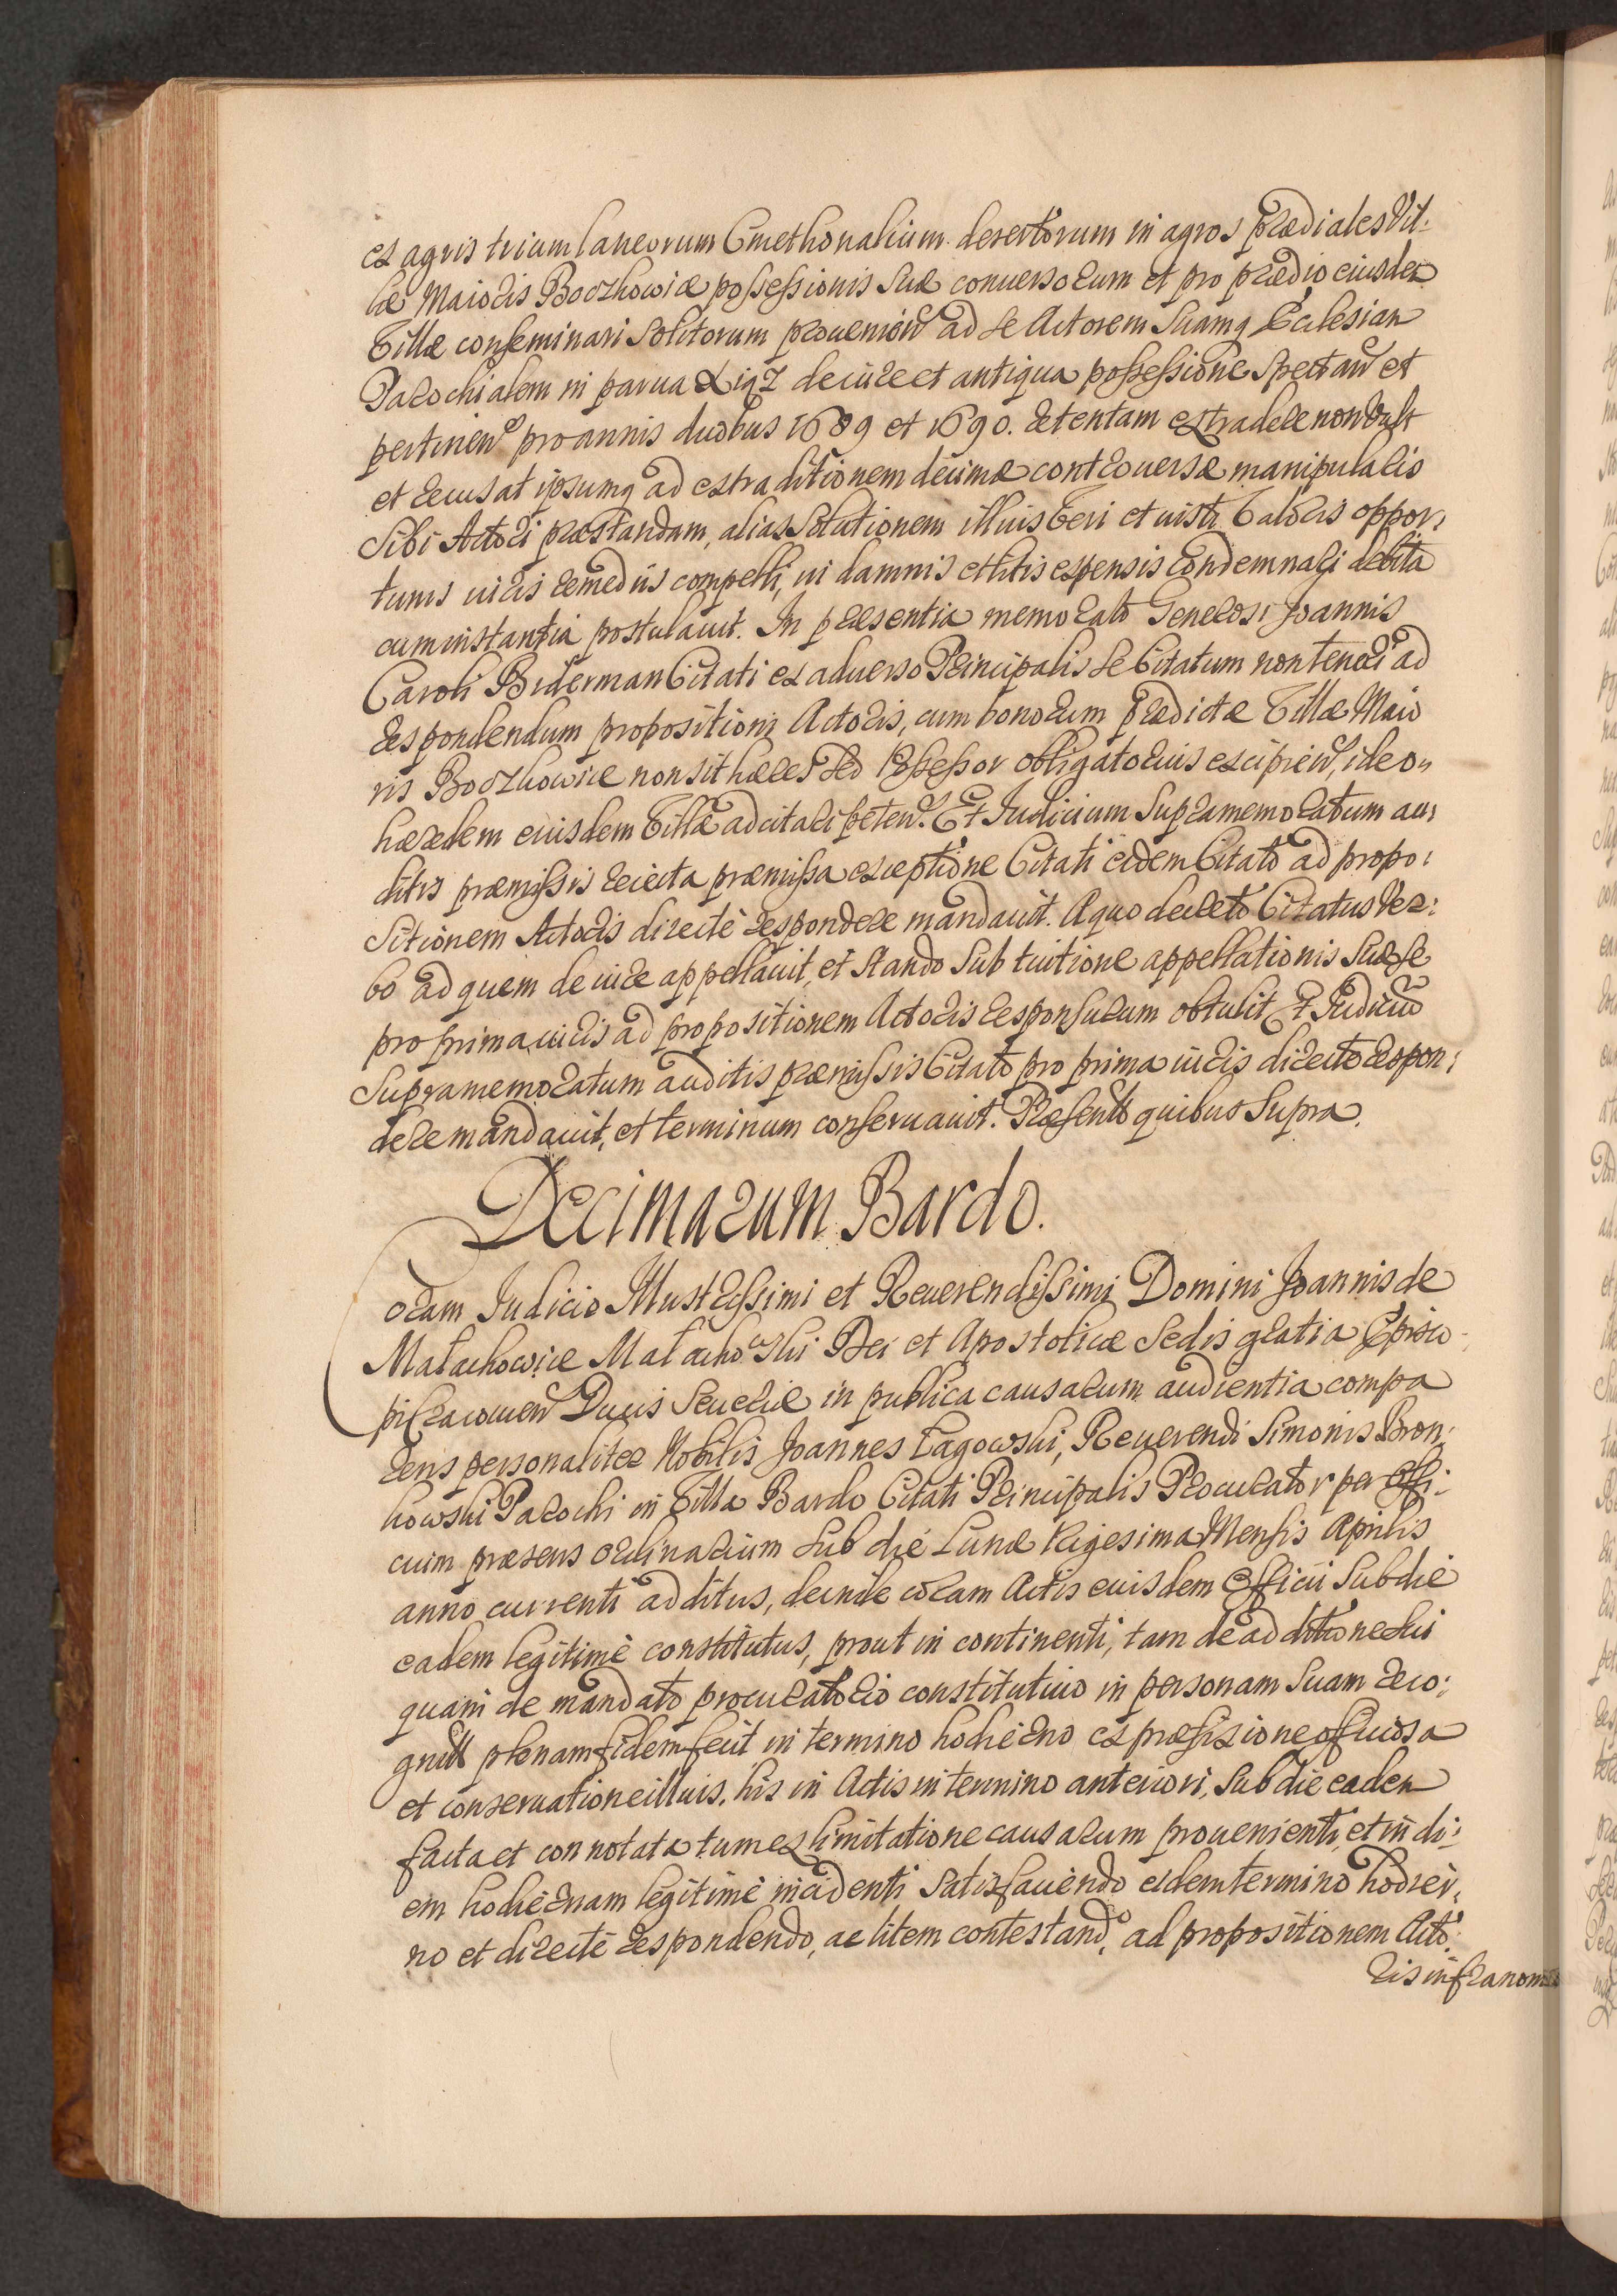 ex agris trium laneorum Cmethonalium desertorum in agros prædiales Vil:
læ Maioris Borzkowiæ possessionis suæ conuersorum et pro prædio eiusdem
Villæ conseminari solitorum prouenien ad se Actorem Suamq Ecclesiam
Parochialem in parua Xiąż de iure et antiqua possessione spectan et
pertinen pro annis duobus 1689 et 1690. detentam extradere non Vult
et recusat ipsumq ad extraditionem decimæ controuersæ manipularis
Sibi Actori præstandam, alias solutionem illius Veri et iusti Valoris oppor:
tunis iuris remediis compelli, in damnis et litis expensis Condemnari debita
cum instantia postulauit. In præsentia memorati Generosi Joannis
Caroli Biderman Citati ex aduerso Principalis se Citatum non teneri ad
respondendum propositioni Actoris, cum bonorum prædictæ Villæ Maio
ris Borzkowice non sit hæres sed Possessor obligatorius excipien, ideo
hæredem eiusdem Villæ adcitari peten. Et Iudicium Supramemoratum au:
ditis præmissis reiecta præmissa exceptione Citati eidem Citato ad propo:
sitionem Actoris directè respondere mandauit. A quo decreto Citatus Ver:
bo ad quem de iure appellauit, et stando sub tuitione appellationis Suæ se
pro prima iuris ad propositionem Actoris responsurum obtulit Et Iudicium
Supramemoratum auditis præmissis Citato pro prima iuris directe respon:
dere mandauit, et terminum conseruauit. Præsentt quibus Supra.
Decimarum Bardo.
Coram Iudicio Illustrissimi et Reuerendissimi Domini Joannis de
Małachowice Małachowski Dei et Apostolicæ Sedis gratia Episco
pi Cracouien Ducis Seueriæ in publica causarum audientia compa
rens personaliter Nobilis Joannes Łagowski, Reuerendi Simonis Bron:
kowski Parochi in Villa Bardo Citati Principalis Procurator per offi:
cium præsens ordinarium sub die Lunæ Vigesima Mensis Aprilis
anno currenti additus, deinde coram Actis eiusdem Officii sub die
eadem legitimè constitutus, prout in continenti, tam de additione sui
quam de mandato procuratorio constitutiuo in personam Suam reco:
gnitt plenam fidem fecit in termino hodierno ex præfixione officiosa
et conseruatione illius, his in Actis in termino anteriori, sub die eadem
facta et connotata tum ex limitatione causarum prouenienti, et in di:
em hodiernam legitimè incidenti satisfaciendo eidem termino hodier:
no et directè respondendo, ac litem contestando, ad propositionem Acto:
ris infranomi